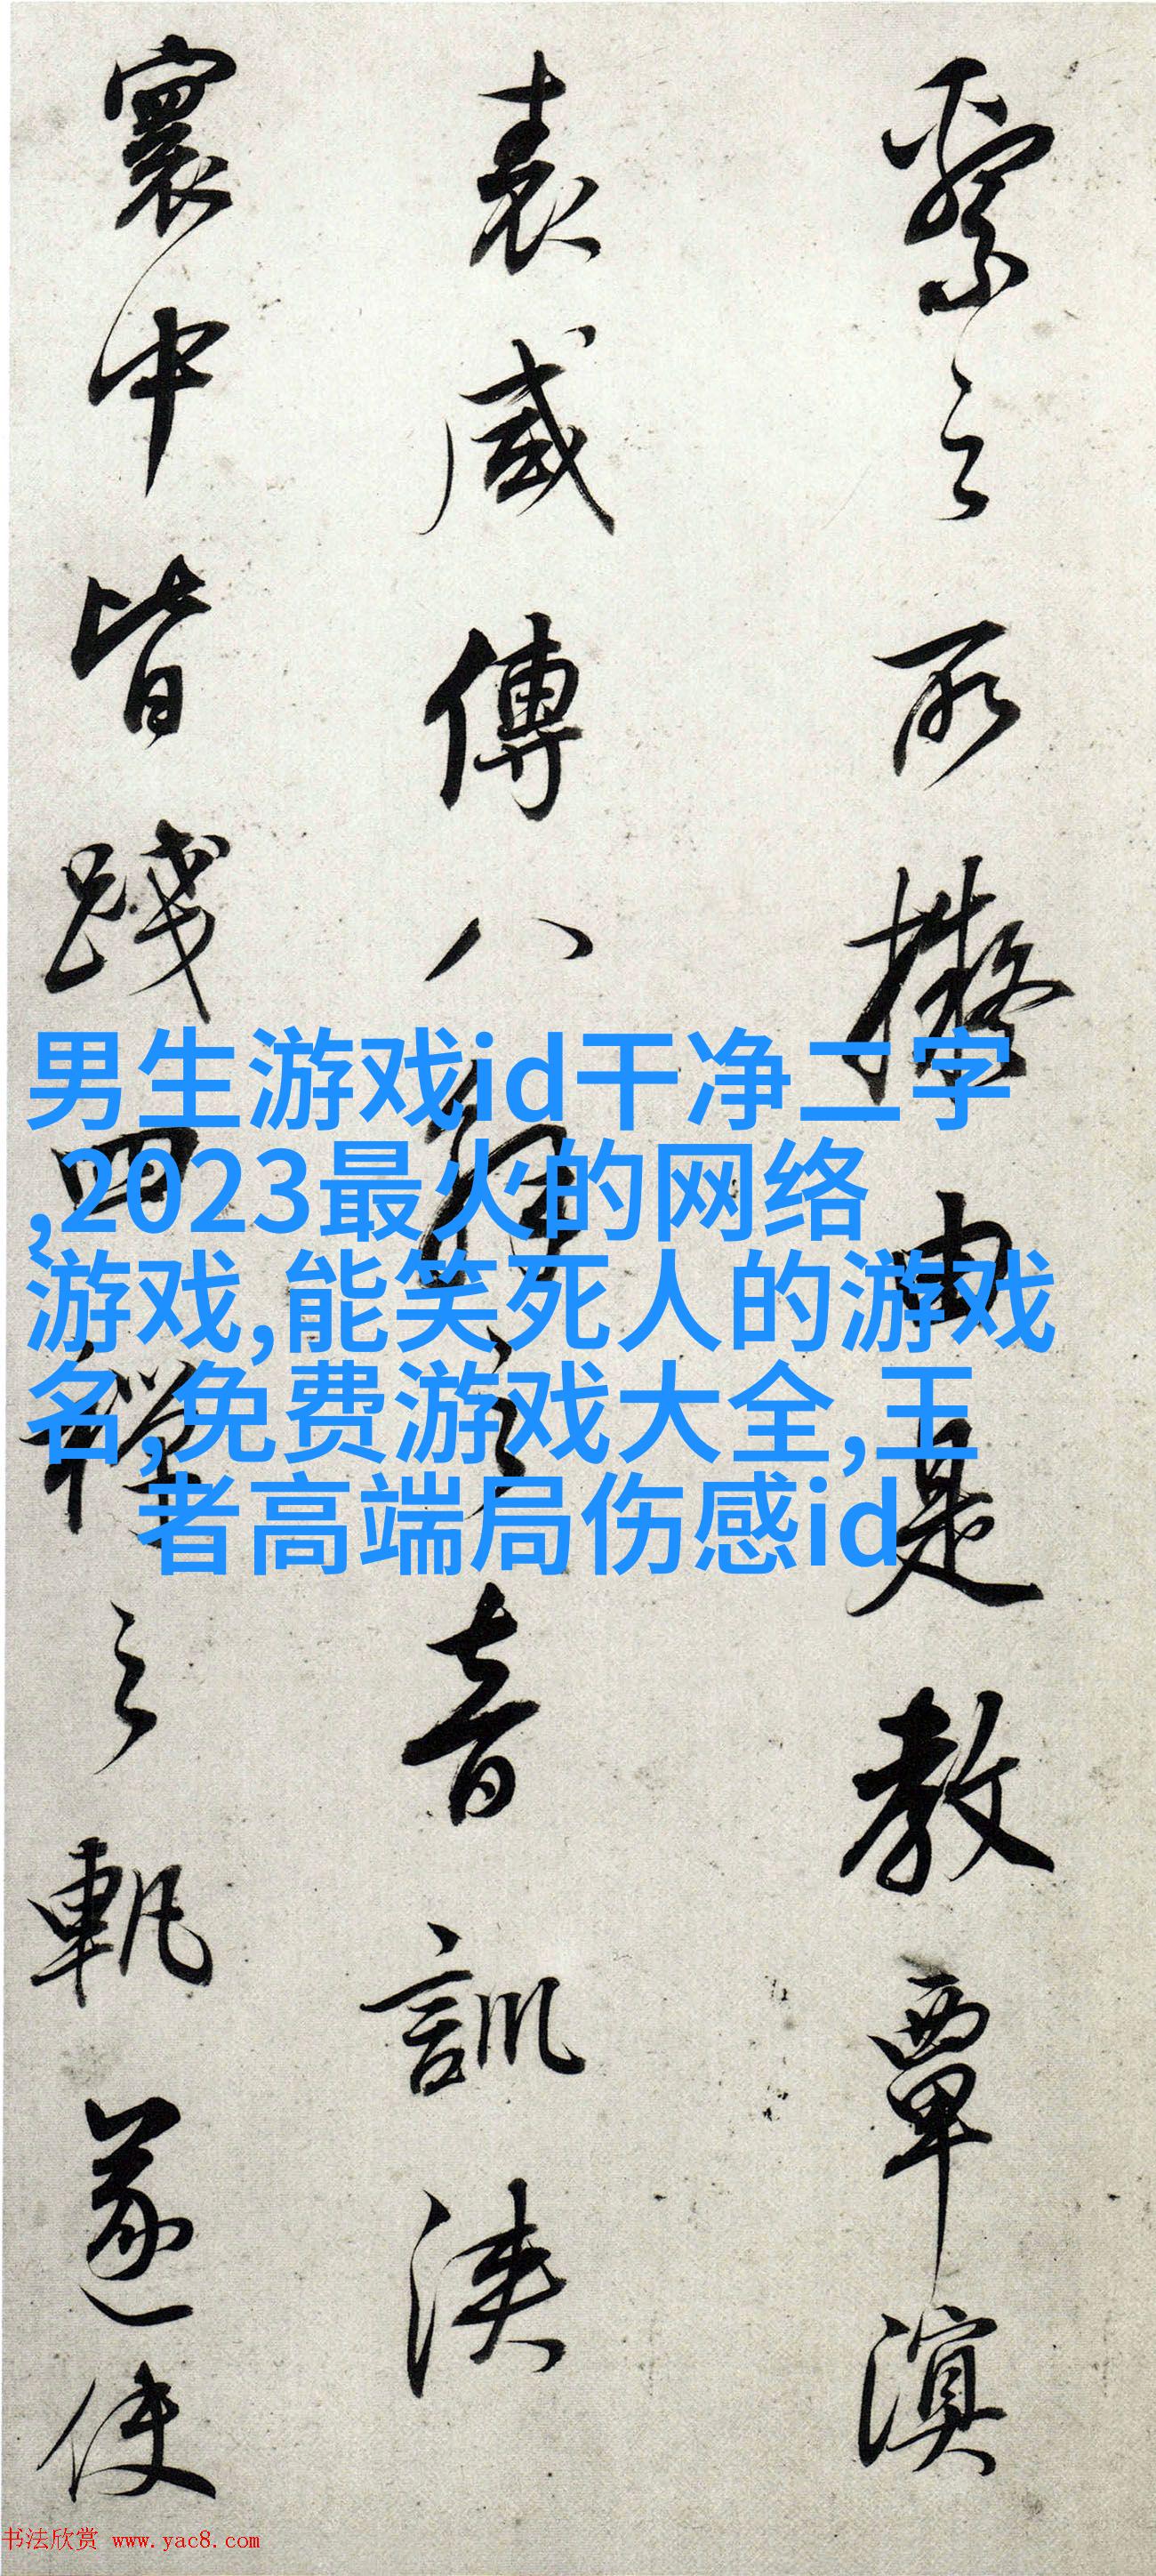 繄之所擬由是教覃溟
表威傳八解之音訓浹
寰中皆踐四禪之軌遂使
男生游戏id干净二字
,2023最火的网络
游戏,能笑死人的游戏
名,免费游戏大全,王
者高端局伤感id
书法欣赏 www.yac8.com